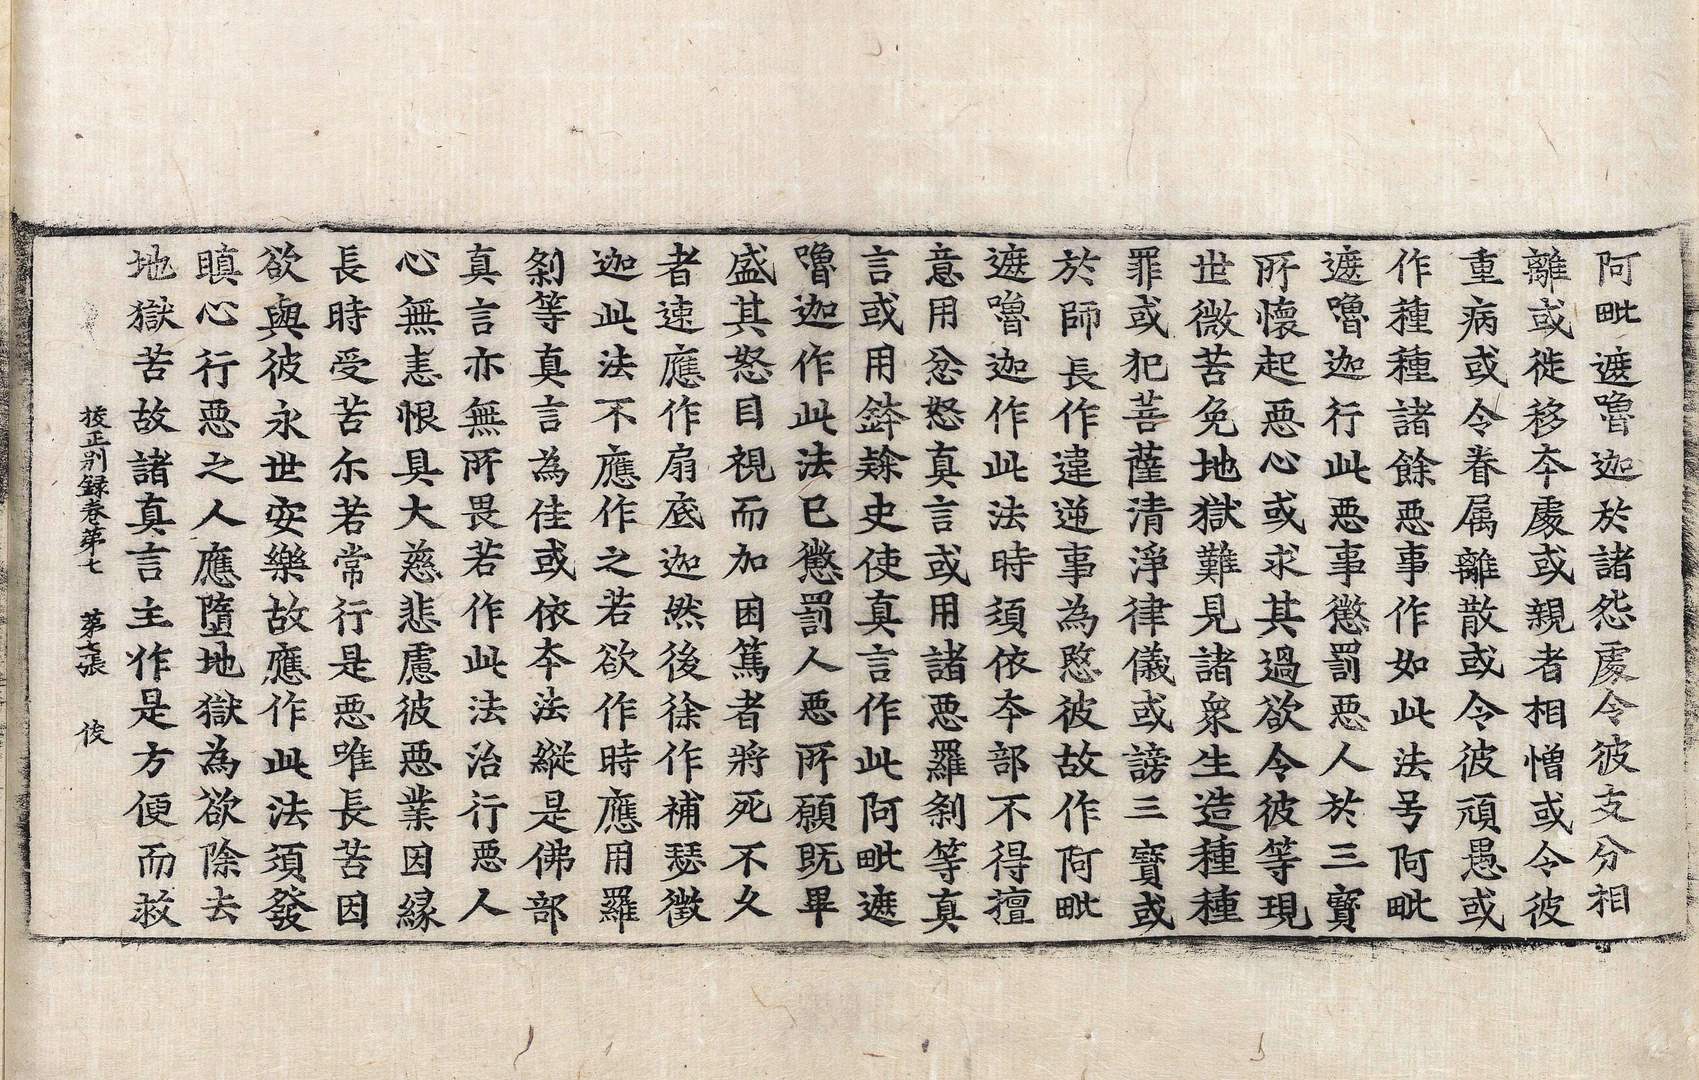 阿毗遮嚕迦於諸怨處令彼支分相
離或徙移夲處或親者相憎或令彼
重病或令眷属離散或令彼頑愚或
作種種諸餘惡事作如此法号阿毗
遮嚕迦行此惡事懲罰惡人於三寶
所懷起惡心或求其過欲令彼等現
世微苦免地獄難見諸衆生造種種
罪或犯菩薩清淨律儀或謗三寶或
於師長作違逆事為愍彼故作阿毗
遮嚕迦作此法時須依夲部不得擅
意用忿怒真言或用諸惡羅剎等真
言或用鉢𧹞史使真言作此阿毗遮
嚕迦作此法已懲罰人惡所願既畢
盛其怒目視而加困篤者將死不久
者速應作扇底迦然後徐作補瑟徵
迦此法不應作之若欲作時應用羅
剎等真言為佳或依夲法縱是佛部
真言亦無所畏若作此法治行惡人
心無恚恨具大慈悲慮彼惡業因緣
長時受苦尒若常行是惡唯長苦因
欲與彼永世安樂故應作此法須發
瞋心行惡之人應墮地獄為欲除去
地獄苦故諸真言主作是方便而救
挍正別録卷第七 第七張 俊